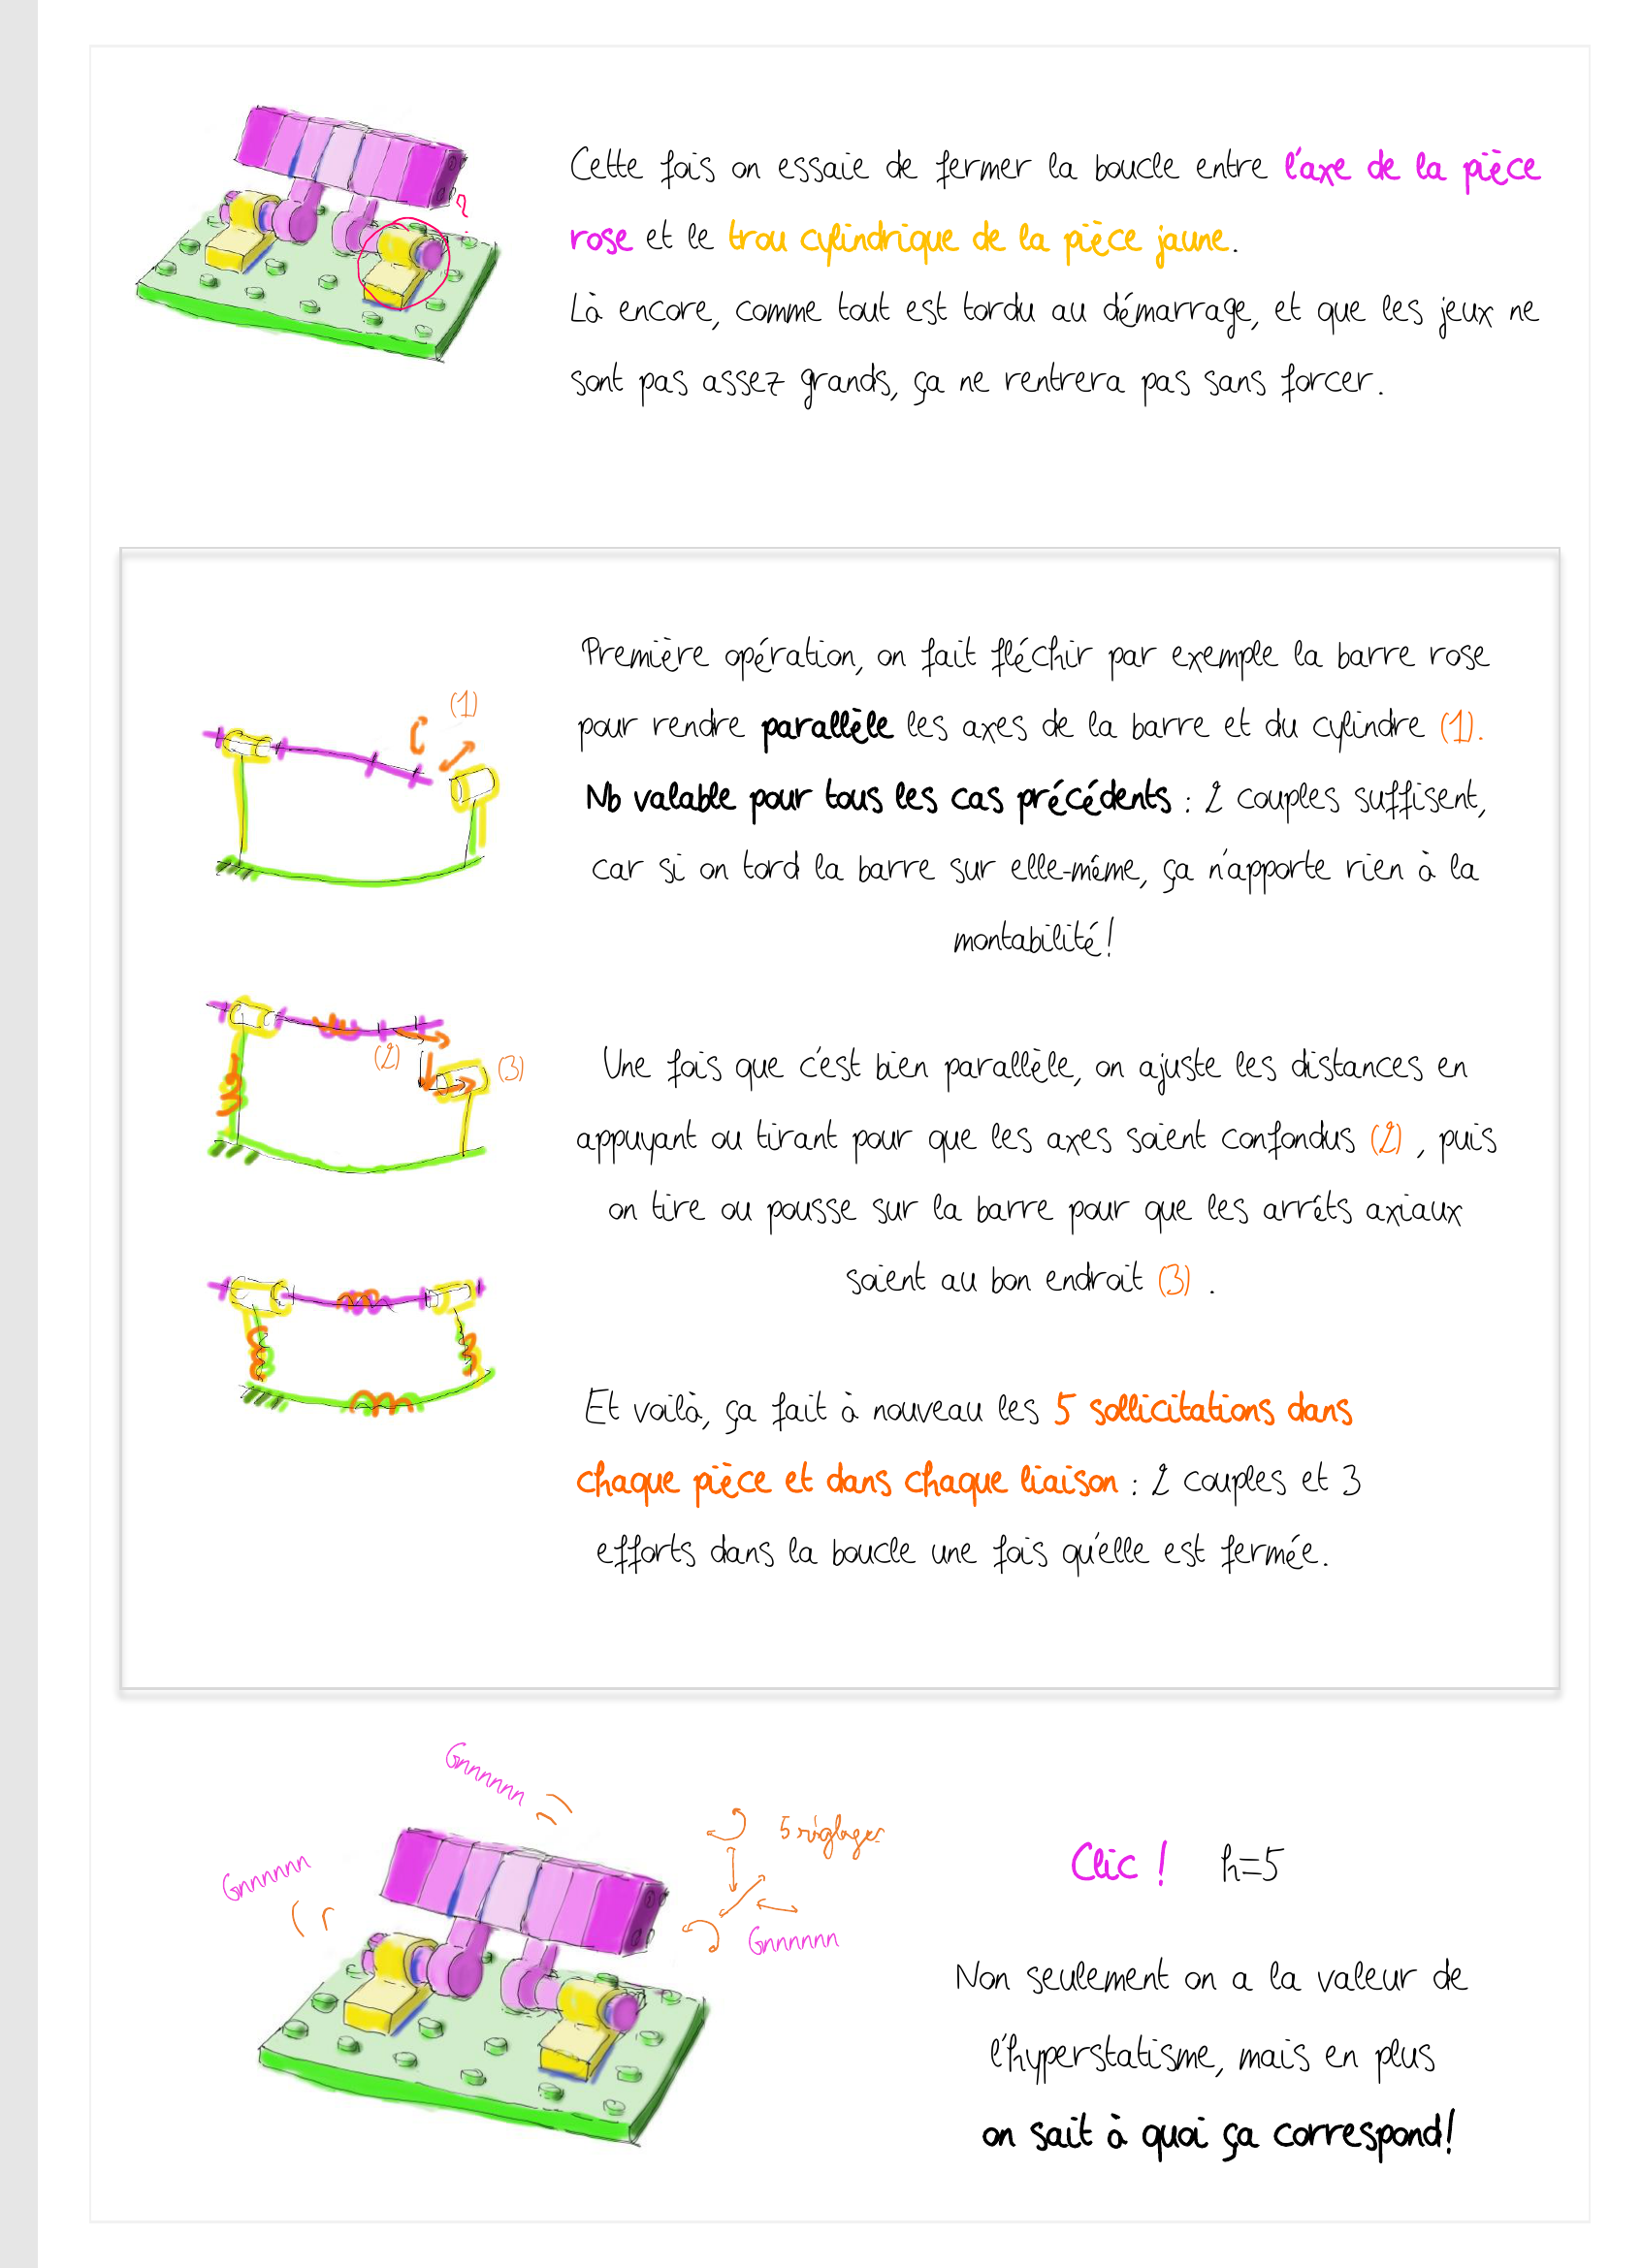 ?
Cette fois on essaie de fermer la boucle entre l'axe de la pièce
rose et le trou cylindrique de la pièce jaune.
Là encore, comme tout est tordu au démarrage, et que les jeux ne
sont pas assez grands, ça ne rentrera pas sans forcer.
(1)
Première opération, on fait fléchir par exemple la barre rose
pour rendre parallèle les axes de la barre et du cylindre (1).
Nb valable pour tous les cas précédents : 2 couples suffisent,
car si on tord la barre sur elle-même, ça n'apporte rien à la
montabilité!
(2)
(3)
Une fois que c'est bien parallèle, on ajuste les distances en
appuyant ou tirant pour que les axes soient confondus (2) , puis
on tire ou pousse sur la barre pour que les arrêts axiaux
soient au bon endroit (3) .
Et voilà, ça fait à nouveau les 5 sollicitations dans
chaque pièce et dans chaque liaison : 2 couples et 3
efforts dans la boucle une fois qu'elle est fermée.
Gnnnnnn
Gnnnnnn
5 réglages
Gnnnnnn
Clic ! h=5
Non seulement on a la valeur de
l'hyperstatisme, mais en plus
on sait à quoi ça correspond!